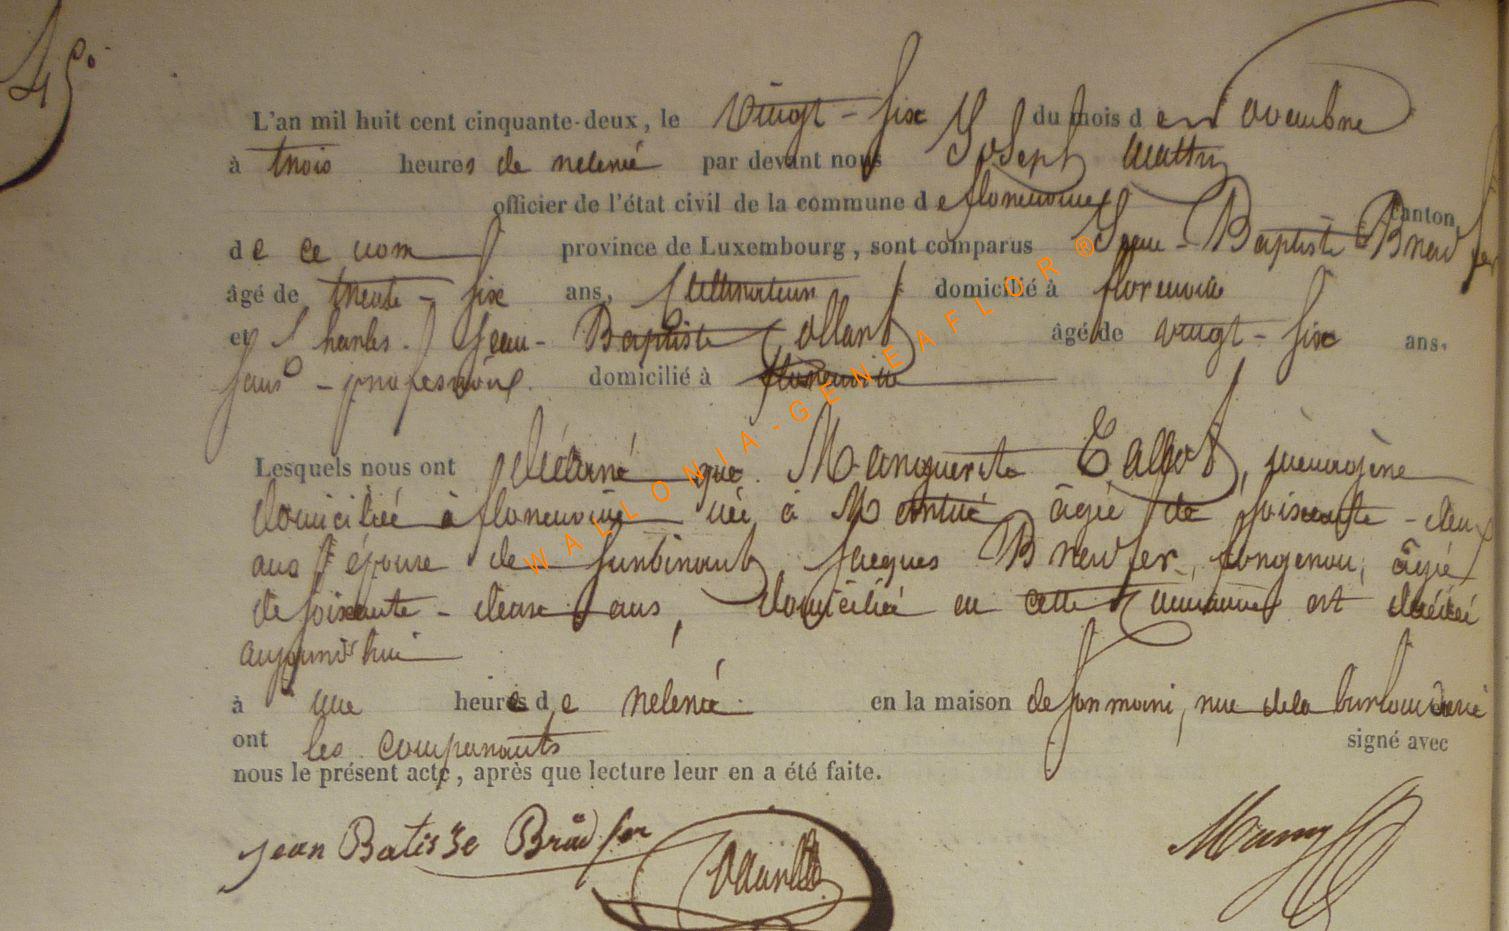 45°
L'an mil huit cent cinquante-deux, le vingt-six du mois de novembre
à trois heures de relevé par devant nous Joseph
officier de l'état civil de la commune de florenville canton
de ce nom province de Luxembourg, sont comparus Jean-Baptiste
âgé de trente-six ans, Cultivateur domicilié à florenville
et Charles Jean-Baptiste Collard âgé de vingt-six ans.
sans profession domicilié à florenville
Lesquels nous ont déclaré que Marguerite Tallot, ménagère
domiciliée à florenville née à âgée de soixante-deux
ans épouse de Jacques, âgé
de soixante-deux ans, domicilié en cette commune est décédée
aujourd'hui
à une heure de relevé en la maison de son mari, rue de la
ont les comparants signé avec
nous le présent acte, après que lecture leur en a été faite.
Jean Batis3e
WALLONIA-GENEAFLOR ®